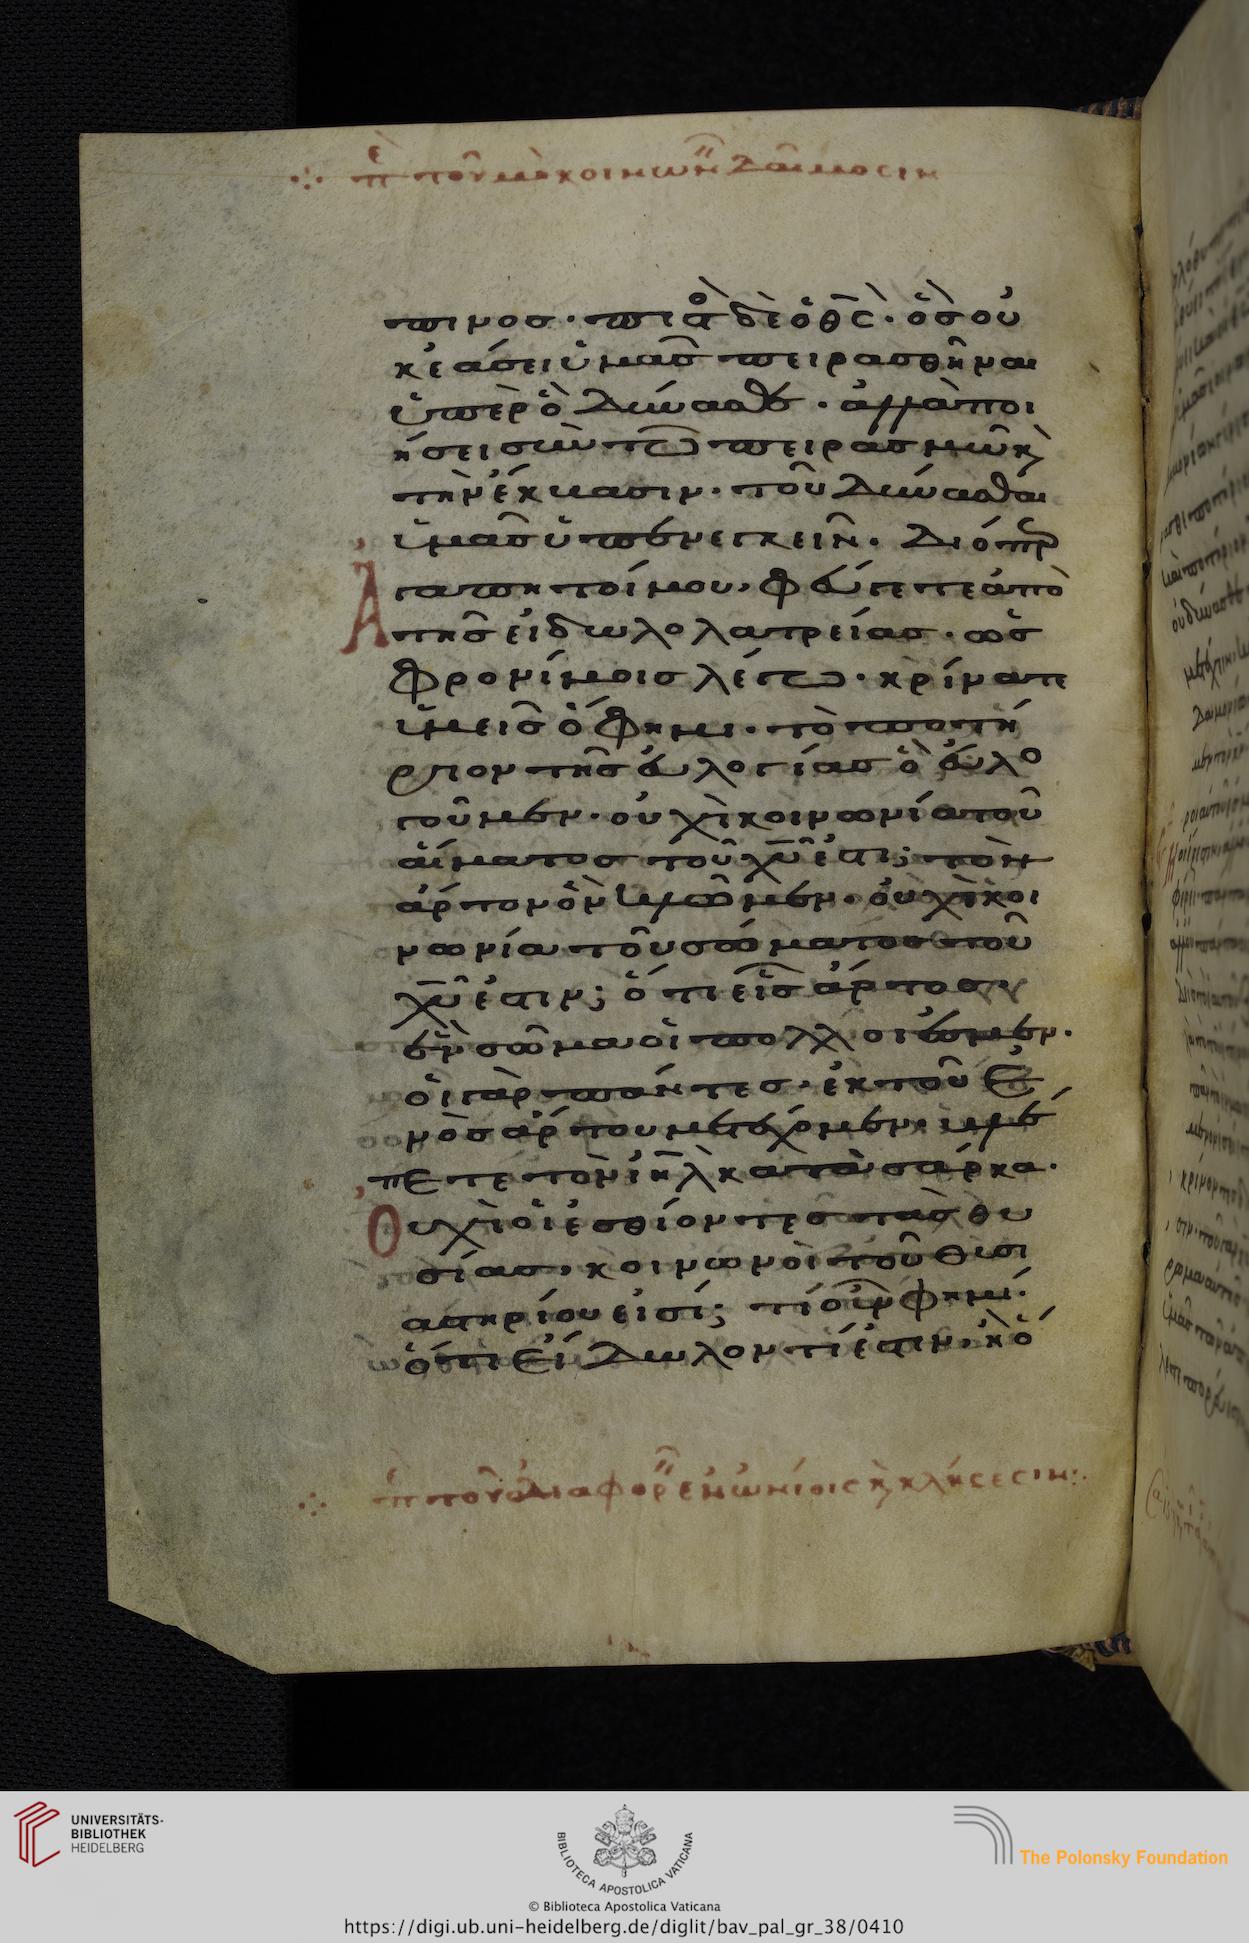 πὲ τοῦ μὴ κοινων δαίμοσιν
πινος· πιστὸς δὲ ὁ θς· ὃς οὐ
κ ἐάσει ὑμᾶς πειρασθῆναι
ὑπὲρ ὃ δύνασθε· ἀλλὰ ποι
ήσει σὺν τῶ πειρασμῶ κὶ
τὴν ἔκβασιν· τοῦ δύνασθαι
ὑμᾶς ὑπενεγκεῖν. Διόπερ
ἀγαπητοί μου, φεύγετε ἀπὸ
τῆς εἰδωλολατρείας· ὡς
φρονίμοις λέγω· κρίνατε
ὑμεῖς ὅ φημι· τὸ ποτή
ριον τῆς εὐλογίας ὃ εὐλο
γοῦμεν· οὐχὶ κοινωνία τοῦ
αἵματος τοῦ χυ ἐστι; τὸν
ἄρτον ὃν κλῶμεν· οὐχὶ κοι
νωνία τοῦ σώματος τοῦ
χυ ἐστιν; ὅτι εἷς ἄρτος·
ἓν σῶμα οἱ πολλοί ἐσμεν·
οἱ γὰρ πάντες· ἐκ τοῦ ἑ
νὸς ἄρτου μετέχομεν· βλέ
πετε τὸν ιηλ κατὰ σάρκα·
Οὐχὶ οἱ ἐσθίοντες τὰς θυ
σίας, κοινωνοὶ τοῦ θυσι
αστηρίου εἰσί; τί οὖν φημί·
ὅτι εἴδωλον τί ἐστιν, κὶ ὅ
πὲ τοῦ διαφόρ ἐν ὠνίοις κὶ κλήσεσιν:
UNIVERSITÄTS-
BIBLIOTHEK
HEIDELBERG
BIBLIOTECA APOSTOLICA VATICANA
The Polonsky Foundation
© Biblioteca Apostolica Vaticana
https://digi.ub.uni-heidelberg.de/diglit/bav_pal_gr_38/0410